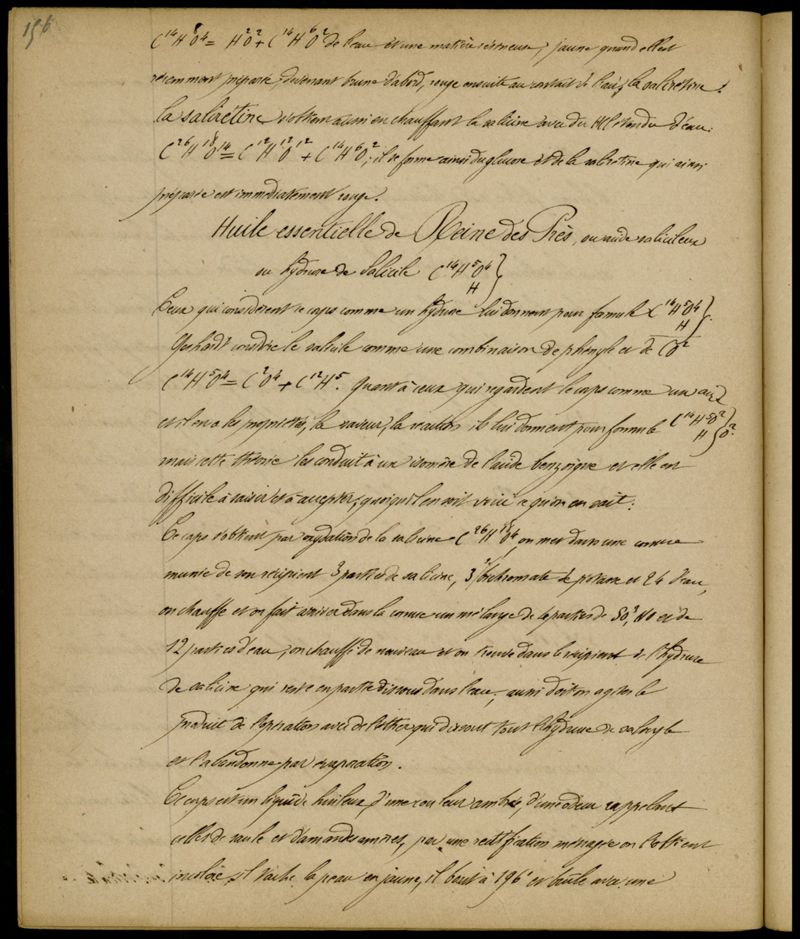 156
C¹⁴H⁸O⁴ = H²O² + C¹⁴H⁶O² de l'eau et une matière résineuse, jaune quand elle est
récemment préparée, devenant brune d'abord, rouge ensuite au contact de l'air, la salirétine.
La salirétine s'obtient aussi en chauffant la salicine avec du HCl étendu d'eau.
C²⁶H¹⁸O¹⁴ = C¹²H¹²O¹² + C¹⁴H⁶O², il se forme ainsi du glucose et de la salirétine qui ainsi
préparée est immédiatement rouge.
Huile essentielle de Reine des Près, ou acide salicileux
ou hydrure de Salicile C¹⁴H⁵O⁴ } H
Ceux qui considèrent ce corps comme un hydrure lui donnent pour formule C¹⁴H⁵O⁴ } H
Gerhardt considère le salicile comme une combinaison de phényle et de CO²
C¹⁴H⁵O⁴ = C²O⁴ + C¹²H⁵. Quant à ceux qui regardent le corps comme un acide
et il en a les propriétés, la saveur, la réaction ils lui donnent pour formule C¹⁴H⁵O² } H } O².
mais cette théorie les conduit à un isomère de l'acide benzoïque et elle est
difficile à saisir et à accepter, quoiqu'il en soit voici ce qu'on en sait :
Ce corps s'obtient par oxydation de la salicine C²⁶H¹⁸O¹⁴, on met dans une cornue
munie de son récipient 3 parties de salicine, 3 bichromate de potasse et 24 d'eau,
on chauffe et on fait arriver dans la cornue un mélange de parties de SO³, HO et de
12 parties d'eau, on chauffe de nouveau et on trouve dans le récipient de l'hydrure
de salicine qui reste en partie dissous dans l'eau, aussi doit on agiter le
produit de l'opération avec de l'éther qui dissout tout l'hydrure de salicyle
et l'abandonne par évaporation.
Ce corps est un liquide huileux, d'une couleur ambrée, d'une odeur rappelant
celles de saule et d'amandes amères, par une rectification ménagée on l'obtient
incolore, il tache la peau en jaune, il bout à 196° et brûle avec une